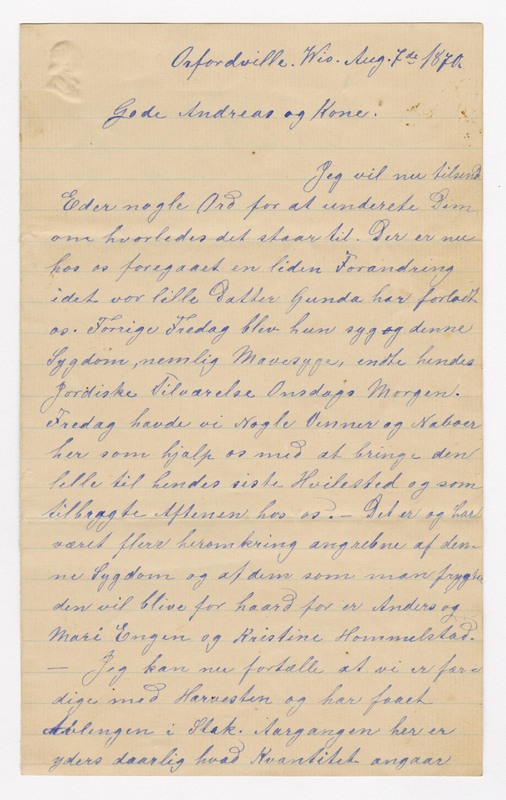 Orfordville. Wis. Aug. 7de 1870.
Gode Andreas og Kone.
Jeg vil nu tilsend
Eder nogle Ord for at underete Dem
om hvorledes det staar til. Der er nu
hos os foregaaet en liden Forandring
idet vor lille Datter Gunda har forladt
os. Forrige Fredag blev hun syg og denne
Sygdom, nemlig Mavesyge, endte hendes
Jordiske Tilværelse Onsdags Morgen.
Fredag havde vi Nogle Venner og Naboer
her som hjalp os med at bringe den
lille til hendes siste Hvilested og som
tilbragte Aftenen hos os. — Det er og har
været flere heromkring angrebne af den-
ne Sygdom og af dem som man frygter
den vil blive for haard for er Anders og
Mari Engen og Kristine Hommelstad.
— Jeg kan nu fortælle at vi er fær-
dige med Harvesten og har faaet
Avlingen i Stak. Aargangen her er
yders daarlig hvad Kvantitet angaar